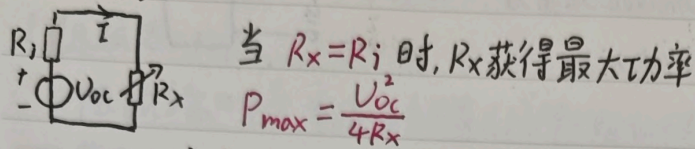 Ri
I
+
-
Uoc
Rx
当 Rx=Ri 时, Rx获得最大功率
Pmax = Uoc²/4Rx